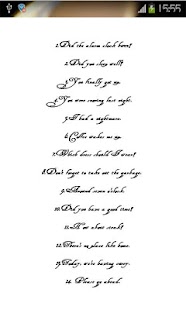 15:55
1.Did the alarm clock burn?
2.Did you sleep well?
3.You finally got up.
4.You were running last night.
5.I had a nightmare.
6.Coffee wakes me up.
7.Which dress should I wear?
8.Don't forget to take out the garbage.
9.Around seven o'clock.
10.Did you have a good time?
11.It's about time?
12.There's no place like home.
13.Today, we're having curry.
14.Please go ahead.